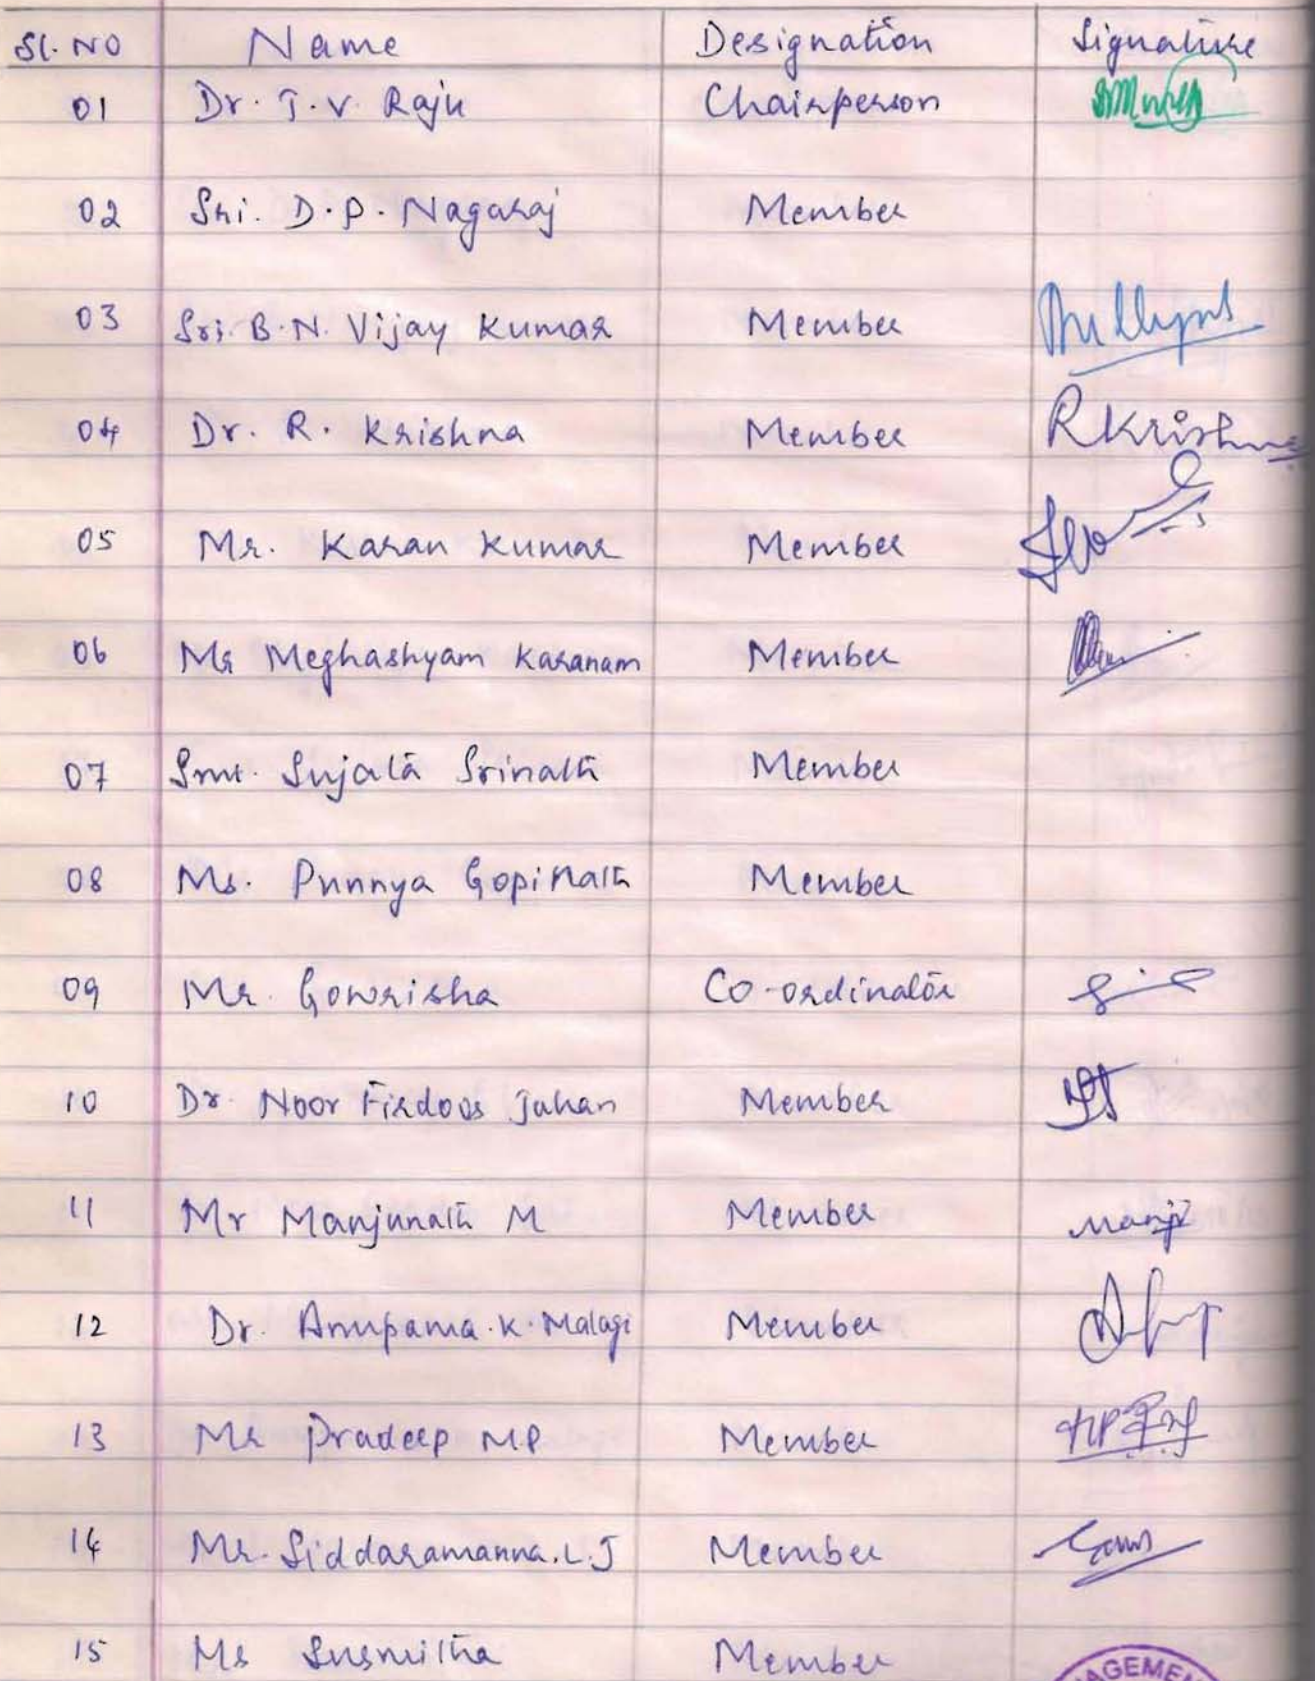 Sl. NO Name Designation Signature
01 Dr. T. V. Raju Chairperson
02 Sri. D. P. Nagaraj Member
03 Sri. B. N. Vijay Kumar Member
04 Dr. R. Krishna Member RKrishna
05 Mr. Karan Kumar Member
06 Mr Meghashyam Karanam Member
07 Smt. Sujata Srinath Member
08 Ms. Punnya Gopinath Member
09 Mr. Gowrisha Co-ordinator
10 Dr. Noor Firdoos Jahan Member
11 Mr Manjunath M Member Manji
12 Dr. Anupama. K. Malagi Member
13 Mr Pradeep M.P Member
14 Mr. Siddaramanna. L. J Member
15 Ms Susmitha Member